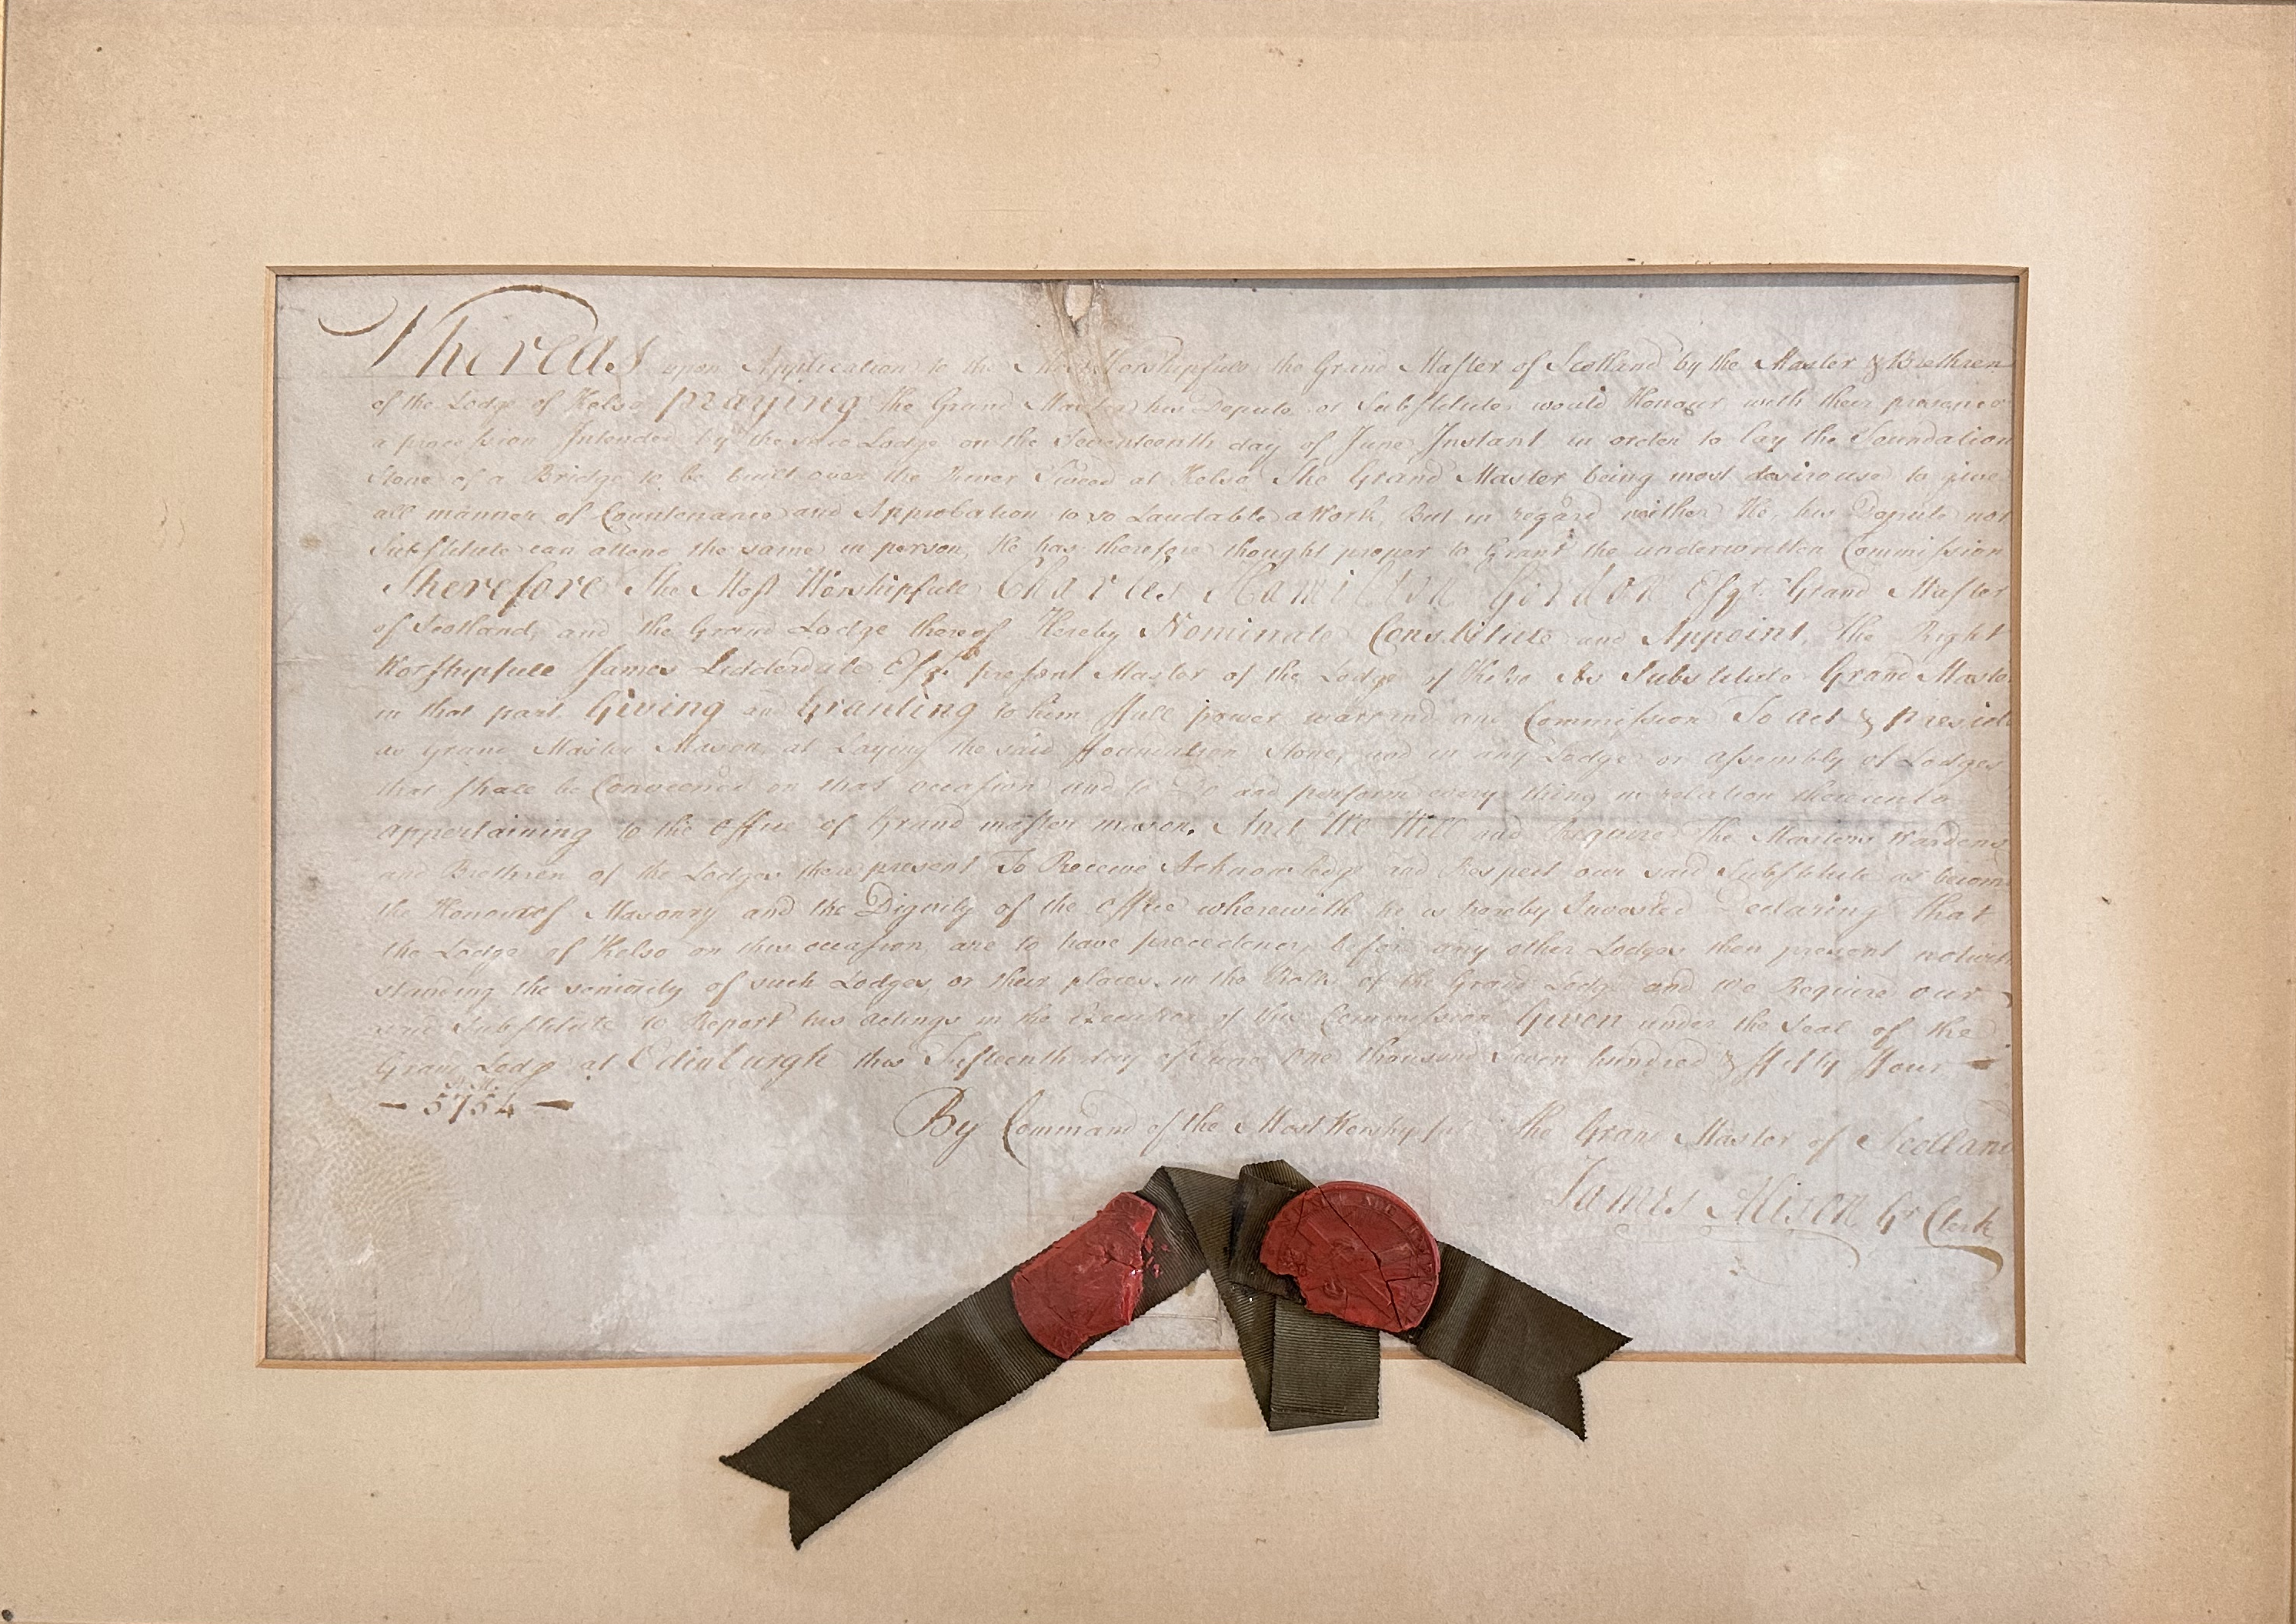 Whereas upon Application to the Most Worshipfull the Grand Master of Scotland by the Master & Brethren
of the Lodge of Kelso praying the Grand Master his Depute or Substitute would Honour with their presence
a procession Intended by the said Lodge on the Seventeenth day of June Instant in order to lay the Foundation
Stone of a Bridge to be built over the River Tweed at Kelso The Grand Master being most desirouse to give
all manner of Countenance and Approbation to so Laudable a Work, But in regard neither He, his Depute nor
Substitute can attend the same in person, He has therefore thought proper to Grant the underwritten Commission
Therefore The Most Worshipfull Charles Hamilton Gordon Esqr. Grand Master
of Scotland, and the Grand Lodge thereof Hereby Nominate Constitute and Appoint, The Right
Worshipfull James Lidderdale Esqr. present Master of the Lodge of Kelso As Substitute Grand Master
in that part Giving and Granting to him full power warrand and Commission To Act & preside
as Grand Master Mason, at Laying the said foundation stone, and in any Lodge or assembly of Lodges
that shall be Conveened on that occasion and to Do and perform every thing in relation thereunto
appertaining to the office of Grand master mason. And We Will and Require The Masters Wardens
and Brethren of the Lodges there present To Receive Acknowledge and Respect our said Substitute as become
the Honour of Masonry and the Dignity of the office wherewith he is hereby Invested Declaring that
the Lodge of Kelso on this occasion are to have precedency before any other Lodges then present notwith
standing the seniority of such Lodges or their places in the Rolls of the Grand Lodge and We Require our
said Substitute to Report his actings in the Execution of this Commission Given under the Seal of the
Grand Lodge at Edinburgh this Fifteenth day of June One thousand seven hundred & fifty four
— 5754 —
By Command of the Most Worshipfull the Grand Master of Scotland
James Alison Gr. Clerk